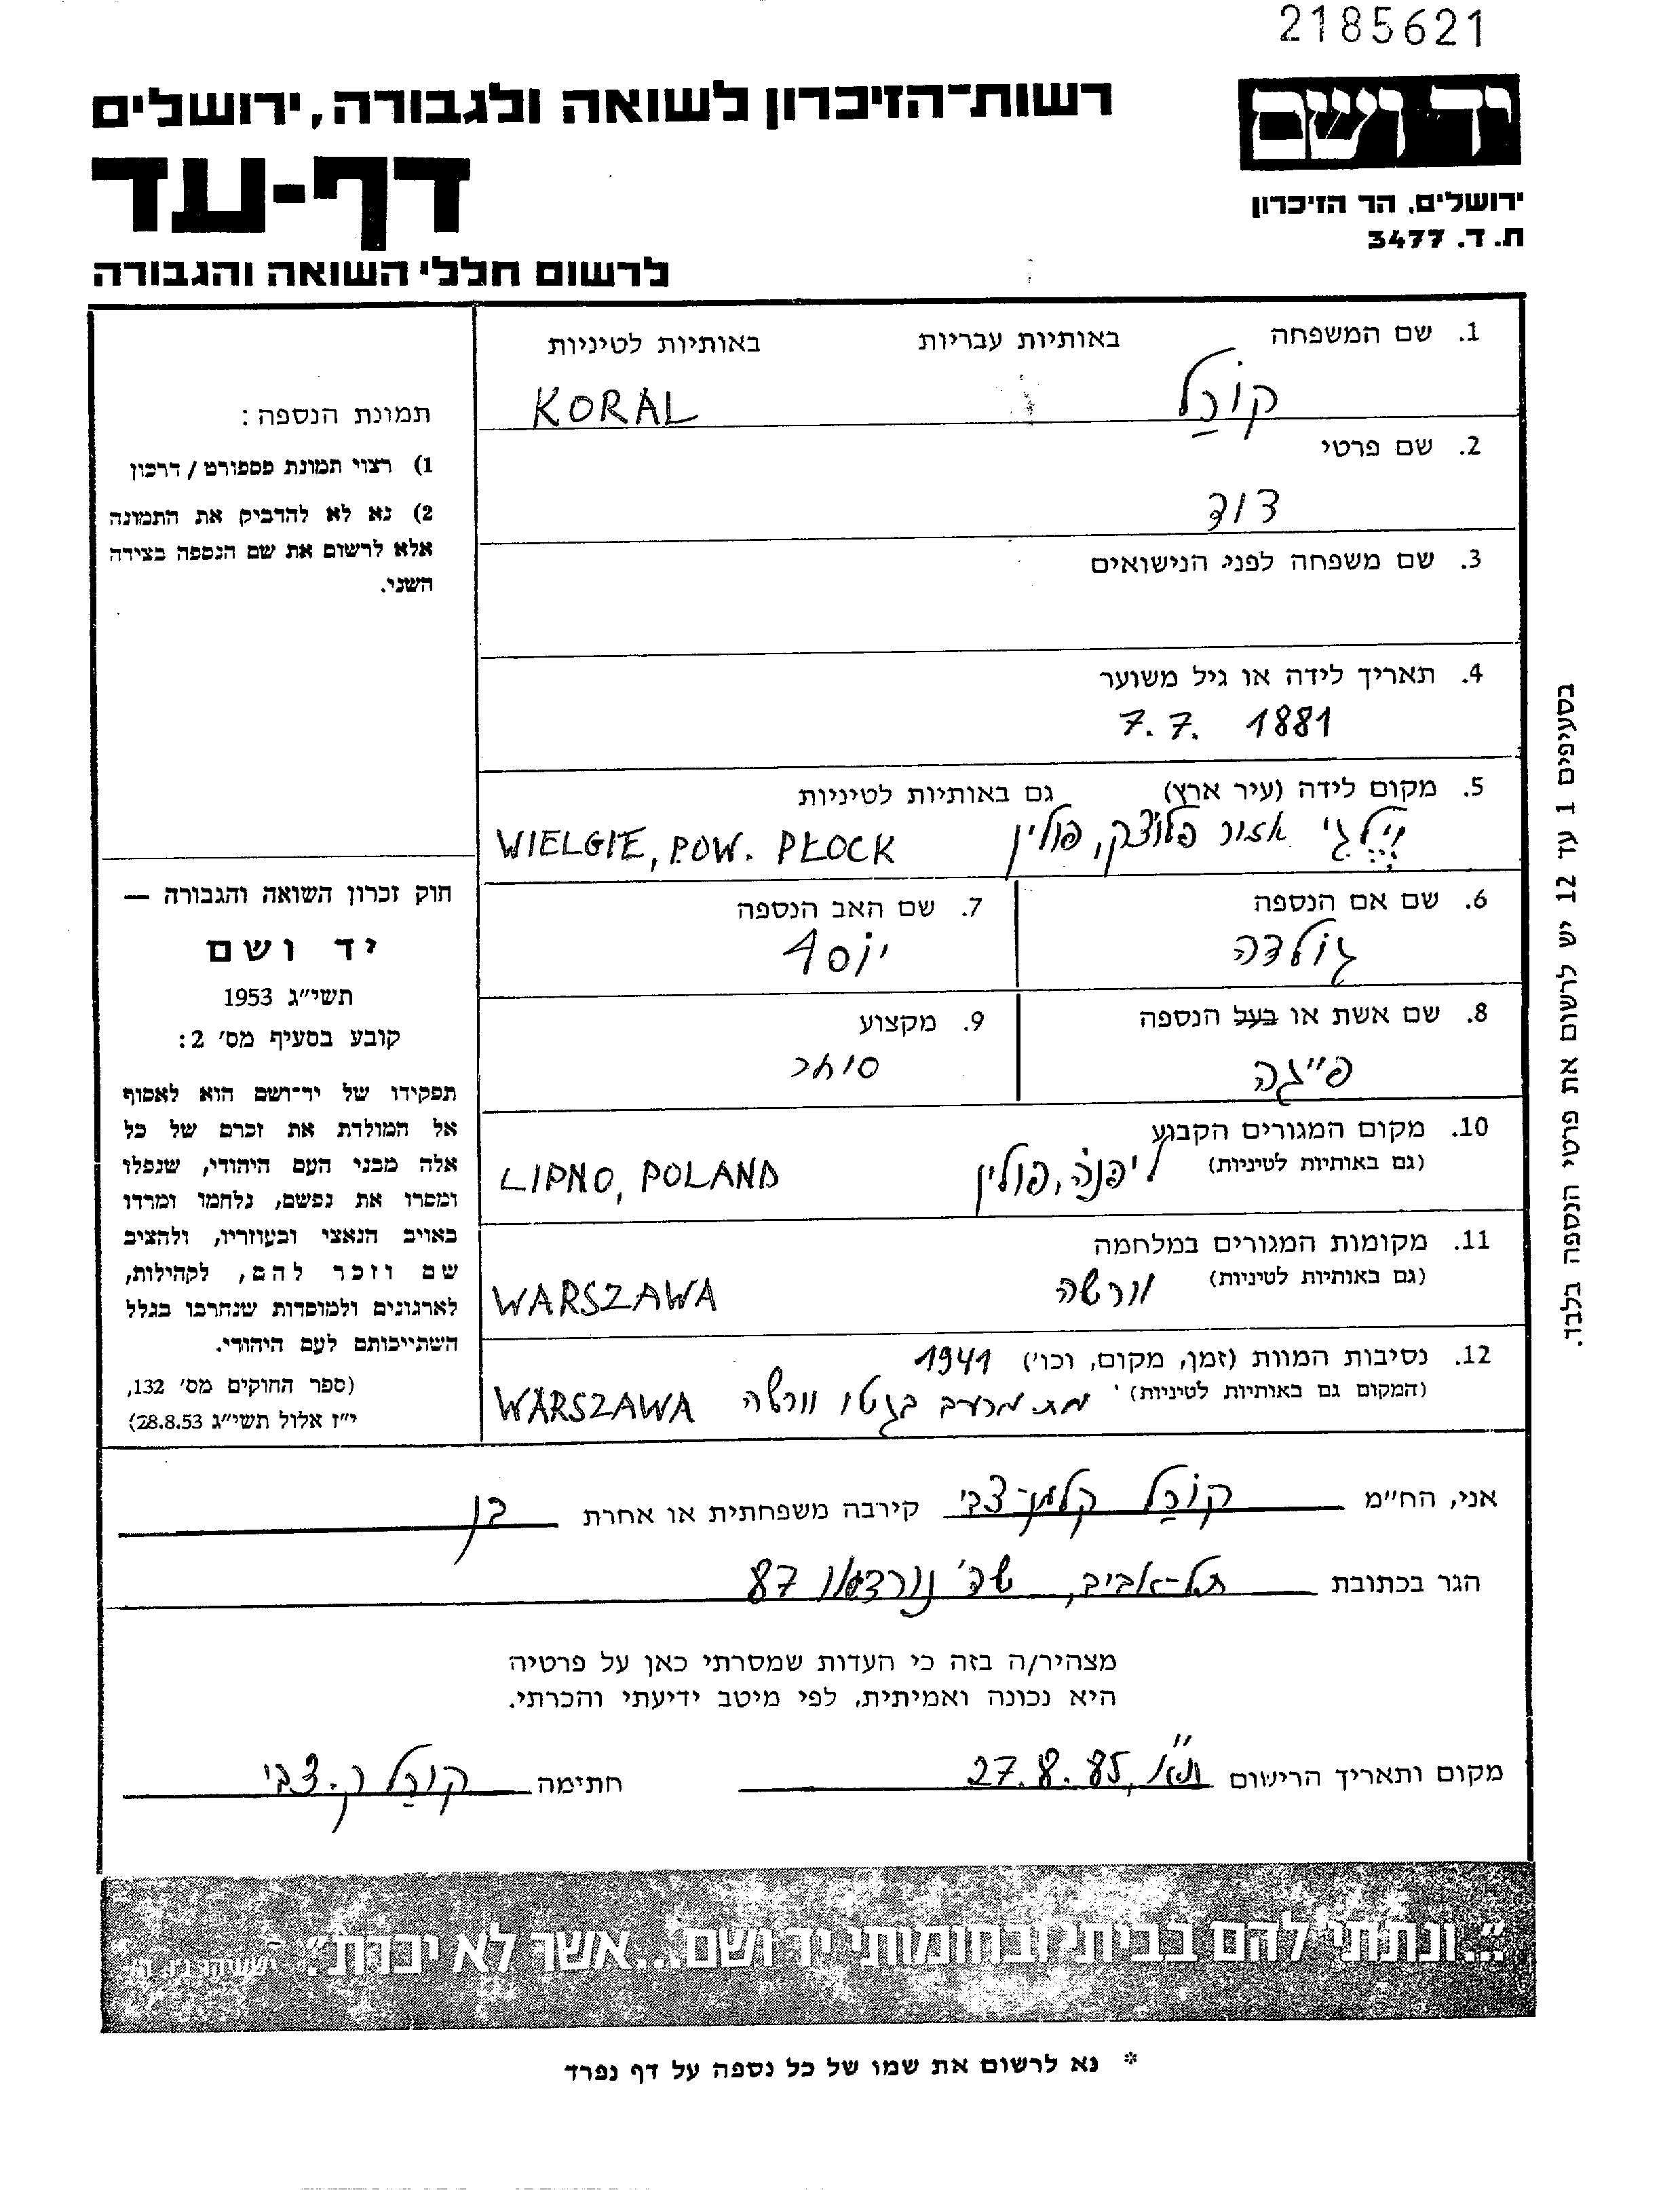 2185621
יד ושם
רשות־הזיכרון לשואה ולגבורה, ירושלים
דף-עד
ירושלים, הר הזיכרון
ת. ד. 3477
לרשום חללי השואה והגבורה
1. שם המשפחה באותיות עבריות באותיות לטיניות
קוֹרַל KORAL
2. שם פרטי
דוד
3. שם משפחה לפני הנישואים
4. תאריך לידה או גיל משוער
7.7. 1881
5. מקום לידה (עיר ארץ) גם באותיות לטיניות
וילגי אזור פלוצק, פולין WIELGIE, POW. PŁOCK
6. שם אם הנספה
גולדה
7. שם האב הנספה
יוסף
8. שם אשת או בעל הנספה
פייגה
9. מקצוע
סוחר
10. מקום המגורים הקבוע
(גם באותיות לטיניות) ליפנה, פולין LIPNO, POLAND
11. מקומות המגורים במלחמה
(גם באותיות לטיניות) וורשה WARSZAWA
12. נסיבות המוות (זמן, מקום, וכו') 1941
(המקום גם באותיות לטיניות) מת מרעב בגטו וורשה WARSZAWA
תמונת הנספה:
1) רצוי תמונת פספורט / דרכון
2) נא לא להדביק את התמונה
אלא לרשום את שם הנספה בצידה
השני.
חוק זכרון השואה והגבורה —
יד ושם
תשי״ג 1953
קובע בסעיף מס׳ 2:
תפקידו של יד־ושם הוא לאסוף
אל המולדת את זכרם של כל
אלה מבני העם היהודי, שנפלו
ומסרו את נפשם, נלחמו ומרדו
באויב הנאצי ובעוזריו, ולהציב
שם וזכר להם, לקהילות,
לארגונים ולמוסדות שנחרבו בגלל
השתייכותם לעם היהודי.
(ספר החוקים מס׳ 132,
י״ז אלול תשי״ג 28.8.53)
בסעיפים 1 עד 12 יש לרשום את פרטי הנספה בלבד.
אני, הח״מ קוֹרַל קלמן-צבי קירבה משפחתית או אחרת בן
הגר בכתובת תל-אביב, שד' נורדאו 87
מצהיר/ה בזה כי העדות שמסרתי כאן על פרטיה
היא נכונה ואמיתית, לפי מיטב ידיעתי והכרתי.
מקום ותאריך הרישום ת״א, 27.8.85 חתימה קורַל ק. צבי
״...ונתתי להם בביתי ובחומותי יד ושם...אשר לא יכרת״. ישעיהו נ״ו, ה׳
* נא לרשום את שמו של כל נספה על דף נפרד